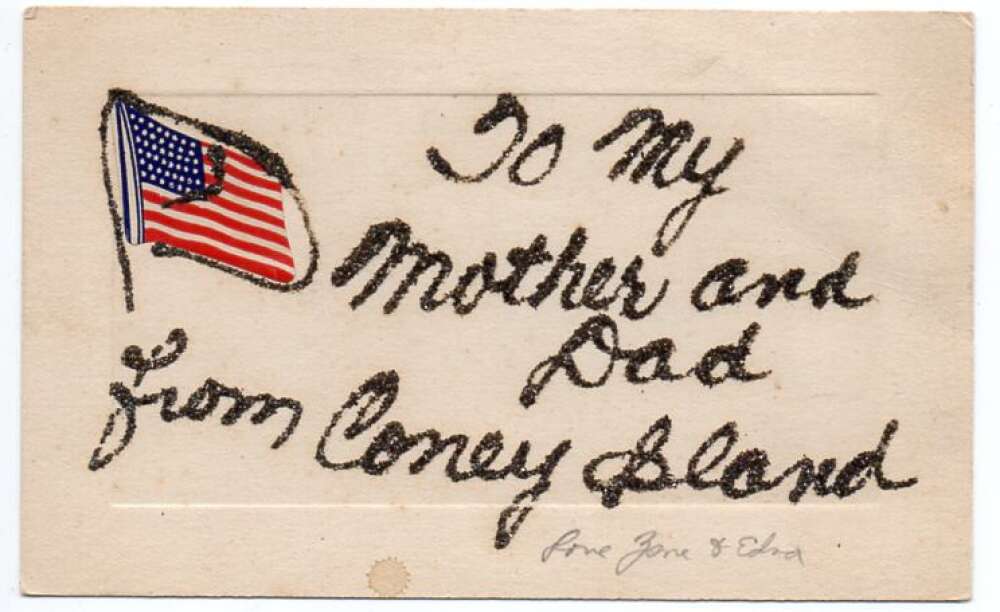 To My
Mother and
Dad
from Coney Island
Love Zane & Edna